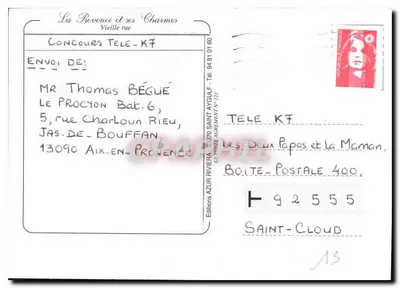 La Provence et ses Charmes
Vieille rue
CONCOURS TELE-K7
ENVOI DE:
MR. Thomas BÉGUÉ
LE PROCYON Bat. 6,
5, rue Charloun RIEU,
JAS-DE-BOUFFAN
13090 AIX-EN-PROVENCE
Editions AZUR RIVIERA - 83370 SAINT AYGULF - Tél. 94 81 01 60
TELE K7
Les Deux Papas et la Maman,
BOITE-POSTALE 400,
92555
SAINT-CLOUD
13